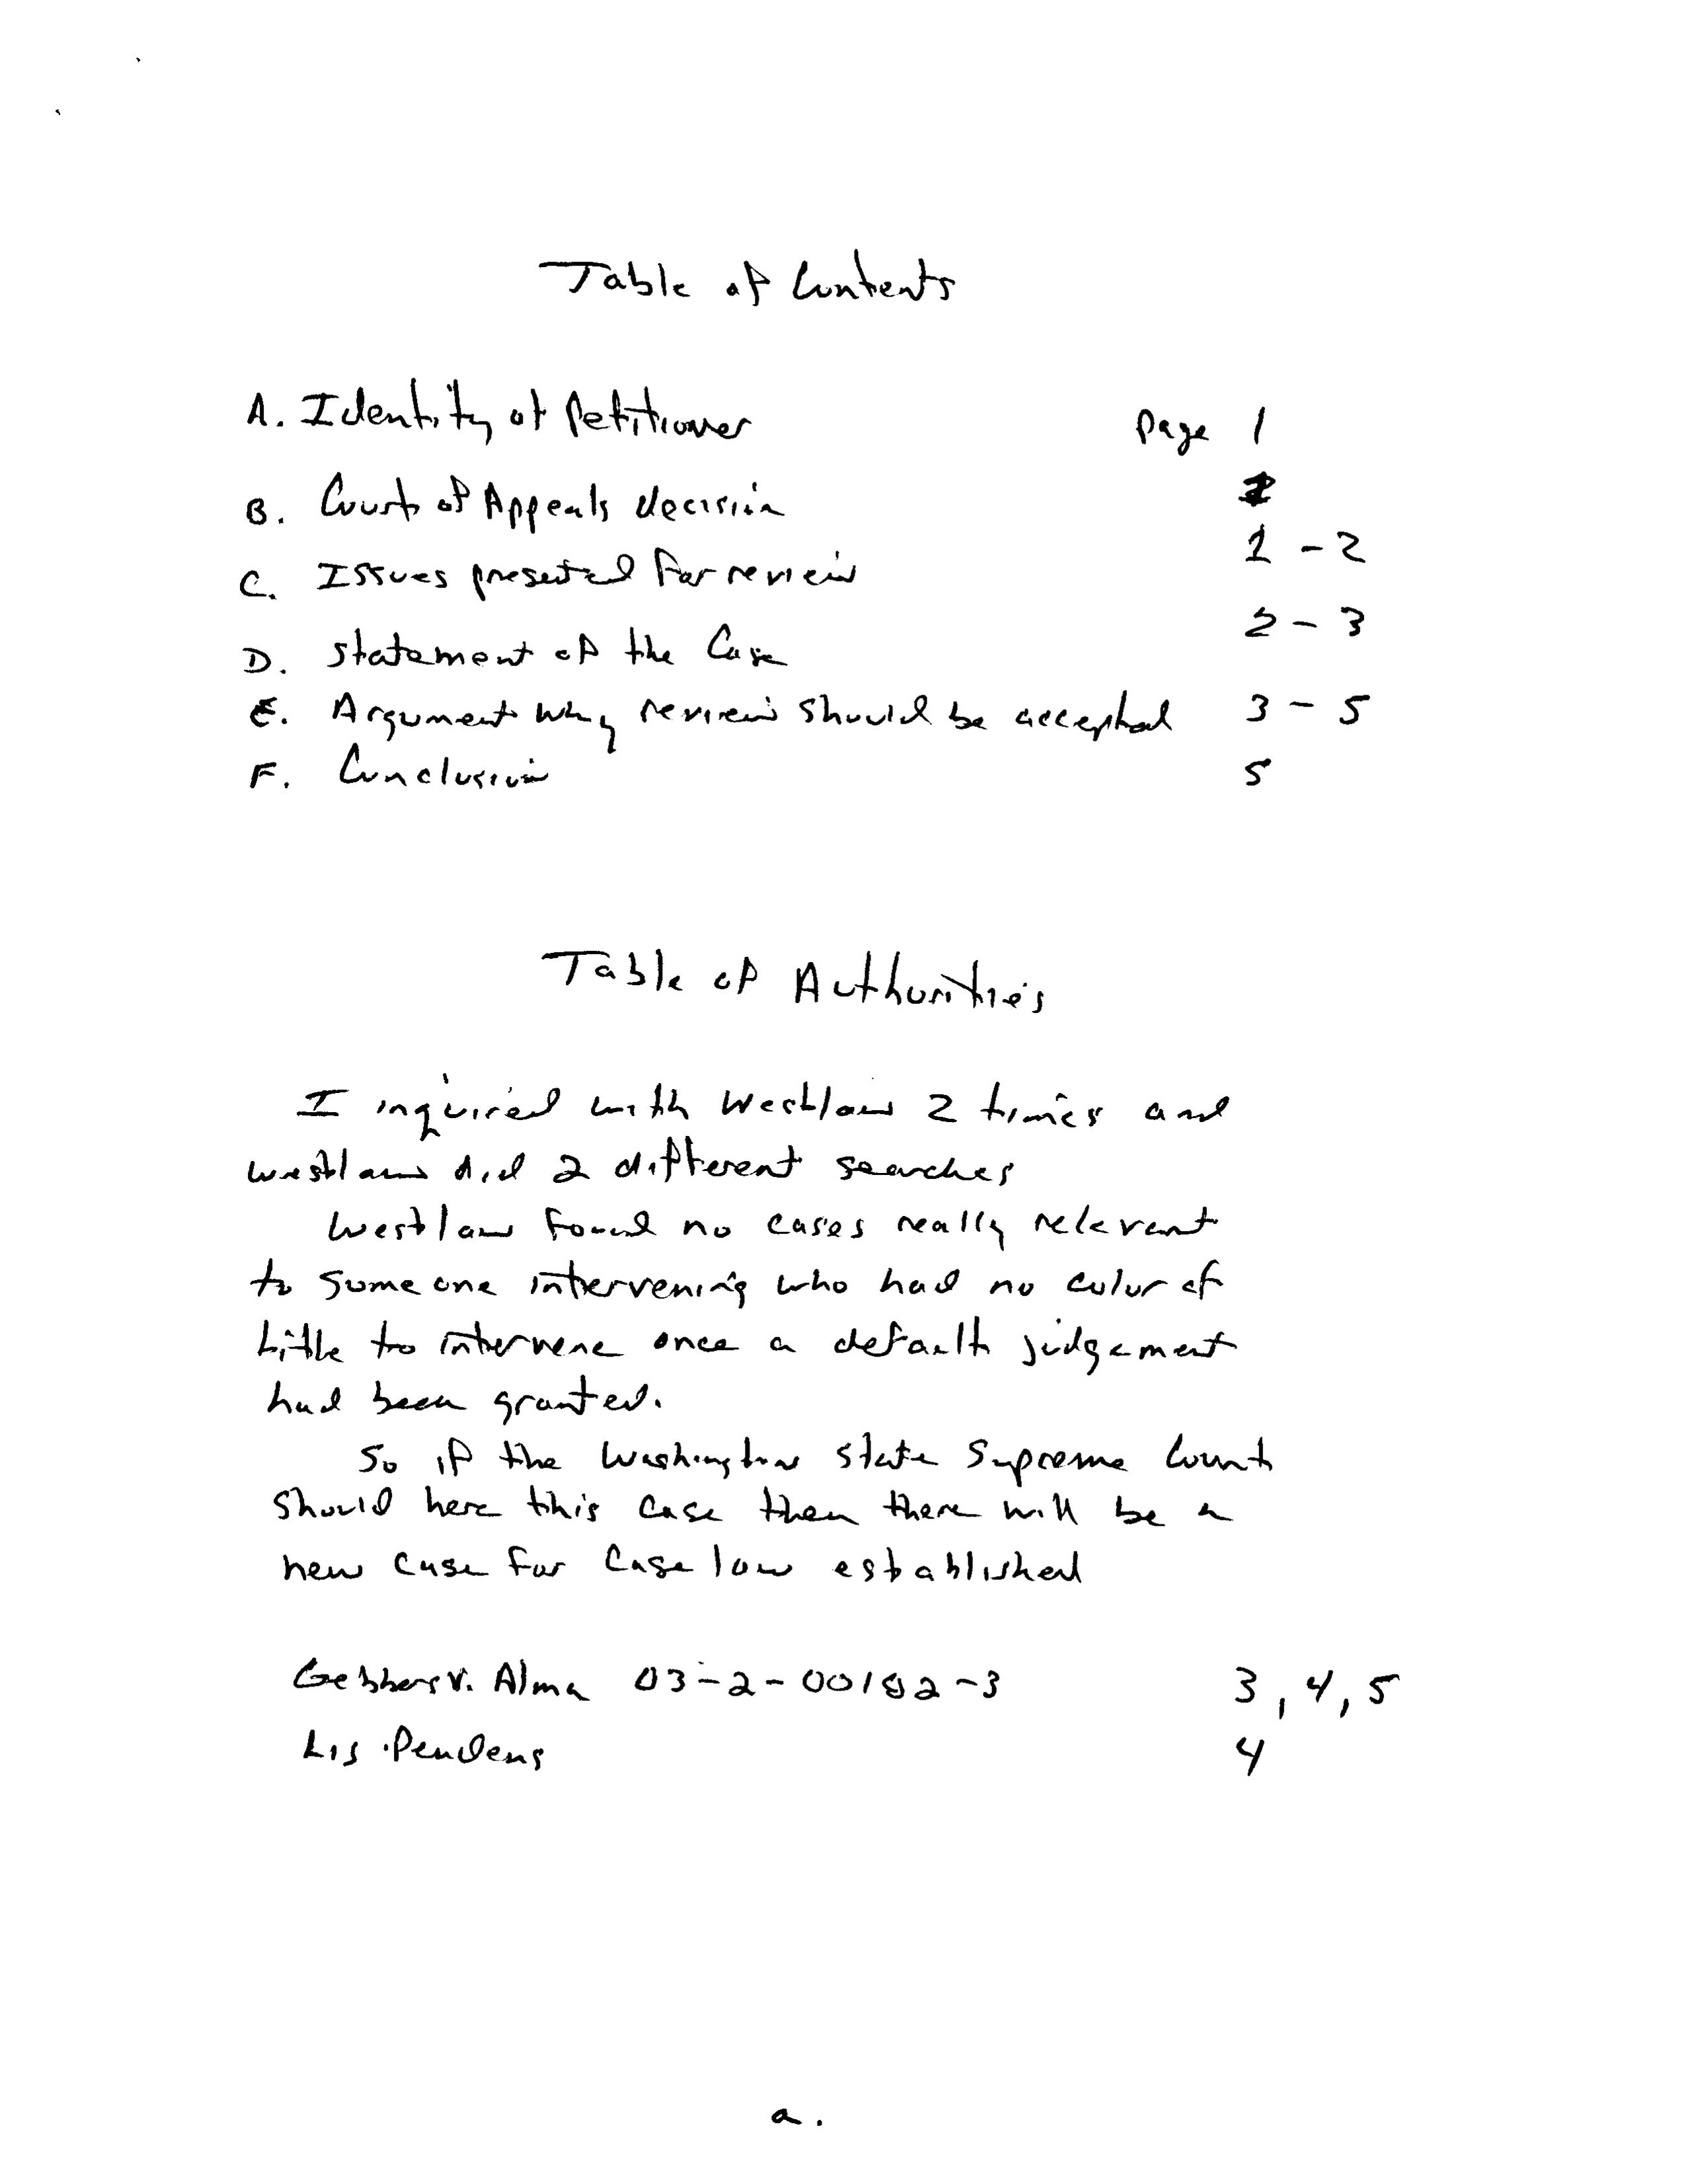 Table of Contents
A. Identity of Petitioner Page 1
B. Court of Appeals decision 1
C. Issues presented for review 1 - 2
D. Statement of the Case 2 - 3
E. Argument why review should be accepted 3 - 5
F. Conclusion 5
Table of Authorities
I inquired with Westlaw 2 times and
westlaw did 2 different searches
Westlaw found no cases really relevant
to someone intervening who had no color of
title to intervene once a default judgement
had been granted.
So if the Washington State Supreme Court
should here this case then there will be a
new case for case law established
Gebbers v. Alma 03-2-00182-3 3, 4, 5
Lis Pendens 4
a.